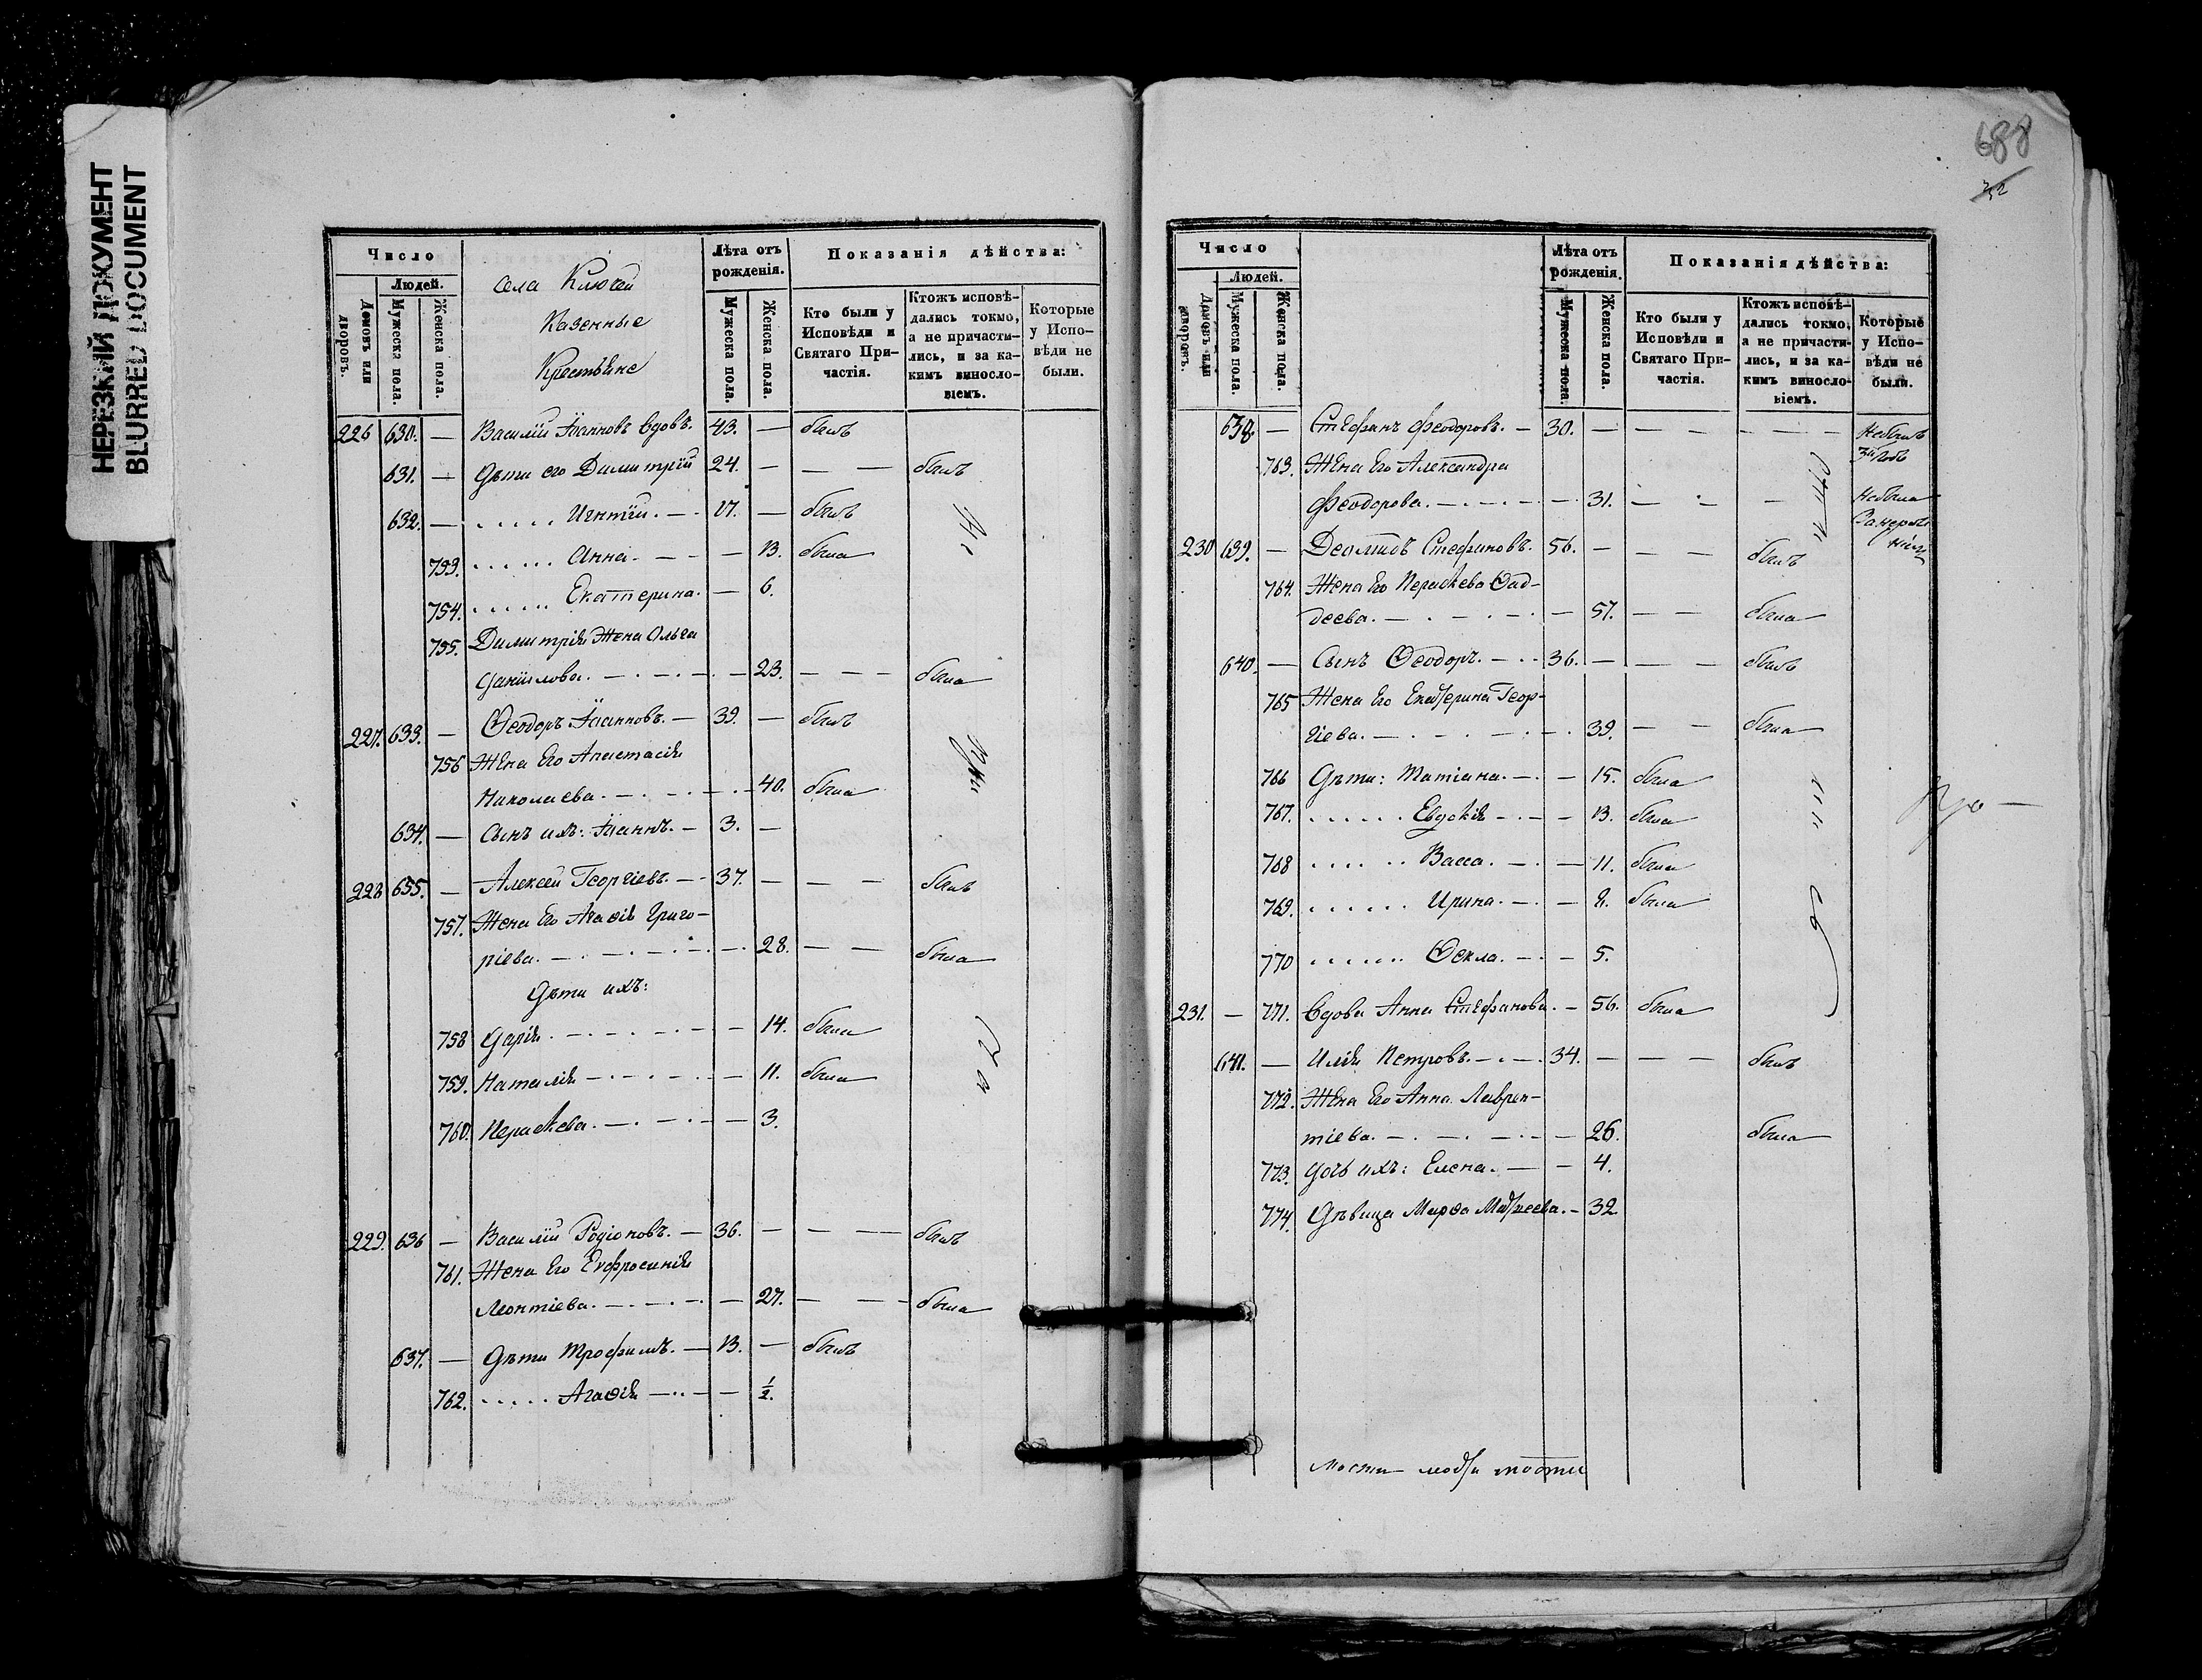 НЕРЕЗКИЙ ДОКУМЕНТ
BLURRED DOCUMENT
688
Число
Людей.
Домовъ или дворовъ.
Мужеска пола.
Женска пола.
села Ключей
Казенные
Крестьяне
Лѣта отъ рожденія.
Мужеска пола.
Женска пола.
Показанія дѣйства:
Кто были у Исповѣди и Святаго Причастія.
Ктожъ исповѣдались токмо, а не причастились, и за какимъ винословіемъ.
Которые у Исповѣди не были.
226 630. — Василій Іоанновъ вдовъ. 43. — былъ
631. — Дѣти его Димитрій 24. — — — былъ
632. — ..... Игнтій. — 17. — былъ
753. ...... Анна. — — — 13. была
754. ...... Екатерина. — 6.
755. Димитрія Жена Ольга
Даніилова. — . — . — . — 23. — — — была
227. 633. — Ѳеодоръ Іоанновъ. — 39. — былъ
756 Жена Его Анастасія
Николаева. — . — . — . — 40. была
634. — Сынъ ихъ: Іоаннъ. — 3. —
228 635. — Алексей Георгіевъ. — 37. — — — былъ
757. Жена Его Агаѳія Григо-
ріева. — . — . — . — 28. — — была
Дѣти ихъ:
758 Дарія. — . — . — . — 14. была
759. Наталія — . — . — — 11. была
760. Параскева. — . — . — — 3.
229. 636 — Василій Родіоновъ. — 36. — — — былъ
761. Жена Его Евфросинія
Леонтіева. — . — . — — 27. — — — была
637. — Дѣти Трофимъ. — 13. — былъ
762. ..... Агаѳія — .. — — ½.
Число
Людей.
Домовъ или дворовъ.
Мужеска пола.
Женска пола.
Лѣта отъ рожденія.
Мужеска пола.
Женска пола.
Показанія дѣйства:
Кто были у Исповѣди и Святаго Причастія.
Ктожъ исповѣдались токмо, а не причастились, и за какимъ винословіемъ.
Которые у Исповѣди не были.
638. — Стефанъ Феодоровъ. — 30. — — — — — — Небылъ
763. Жена Его Александра
Феодорова. — . — . — — 31. — — — Небыла
230 639. — Деомидъ Стефановъ. 56. — — — былъ
764. Жена Его Параскева Фад-
деева. — . — . — — 57. — — была
640. — Сынъ Ѳеодоръ. — . — 36. — — — былъ
765 Жена Его Екатерина Геор-
гіева. — . — . — . — 39. — — была
766 Дѣти: Татіана. — . — 15. была
767. ...... Евдокія — . — — 13. была
768 ...... Васса. — . — 11. была
769. ...... Ирина. — . — 8. была
770 ....... Ѳекла. — . — 5.
231. — 771. Вдова Анна Стефанова. — 56. была
641. — Илія Петровъ. — . — 34. — — — былъ
772. Жена Его Анна Лаврен-
тіева. — . — . — — 26. была
773. Дочь ихъ: Елена. — — 4.
774. Дѣвица Марѳа Матѳеева. — 32.